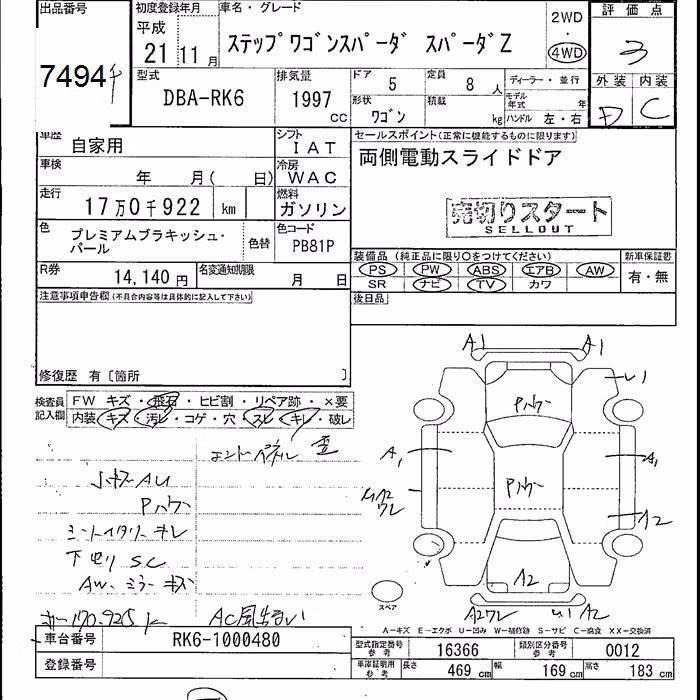 出品番号 初度登録年月 車名・グレード 2WD 評価点
平成 21年 11月 ステップワゴンスパーダ スパーダZ ・ 4WD 3
7494 型式 排気量 ドア 5 定員 8人 ディーラー・並行 外装 内装
DBA-RK6 1997cc 形状 ワゴン 積載 kg モデル年式 年 D C
ハンドル 左・右
車歴 自家用 シフト IAT セールスポイント(正常に機能するものに限ります)
車検 年 月( 日) 冷房 WAC 両側電動スライドドア
走行 17万0千922 km 燃料 ガソリン 売切りスタート
SELLOUT
色 プレミアムブラキッシュ・パール 色替 色コード PB81P
装備品(純正品に限り○をつけてください) 新車保証書
R券 14,140円 名変通知期限 月 日 PS PW ABS エアB AW 有・無
SR ナビ TV カワ
注意事項申告欄(不具合内容等は具体的に記入して下さい) 後日品
修復歴 有〔箇所 〕
検査員記入欄 FW キズ・飛石・ヒビ割・リペア跡・×要
内装 キズ・汚レ・コゲ・穴・スレ・キレ・破レ
A1 A1
U1
Pハケー
エンドパネル
A1 A1
Pハケー
Pハケー
A2
シートイタリーキレ
下廻り SC
A2
AW、ミラーキズ
スペア
A2ワレ U1 A2
A-キズ E-エクボ U-凹み W-補修跡 S-サビ C-腐食 XX-交換済
車台番号 RK6-1000480 型式指定番号 参考 16366 類別区分番号 参考 0012
登録番号 車庫証明用 参考 長さ 469cm 幅 169cm 高さ 183cm